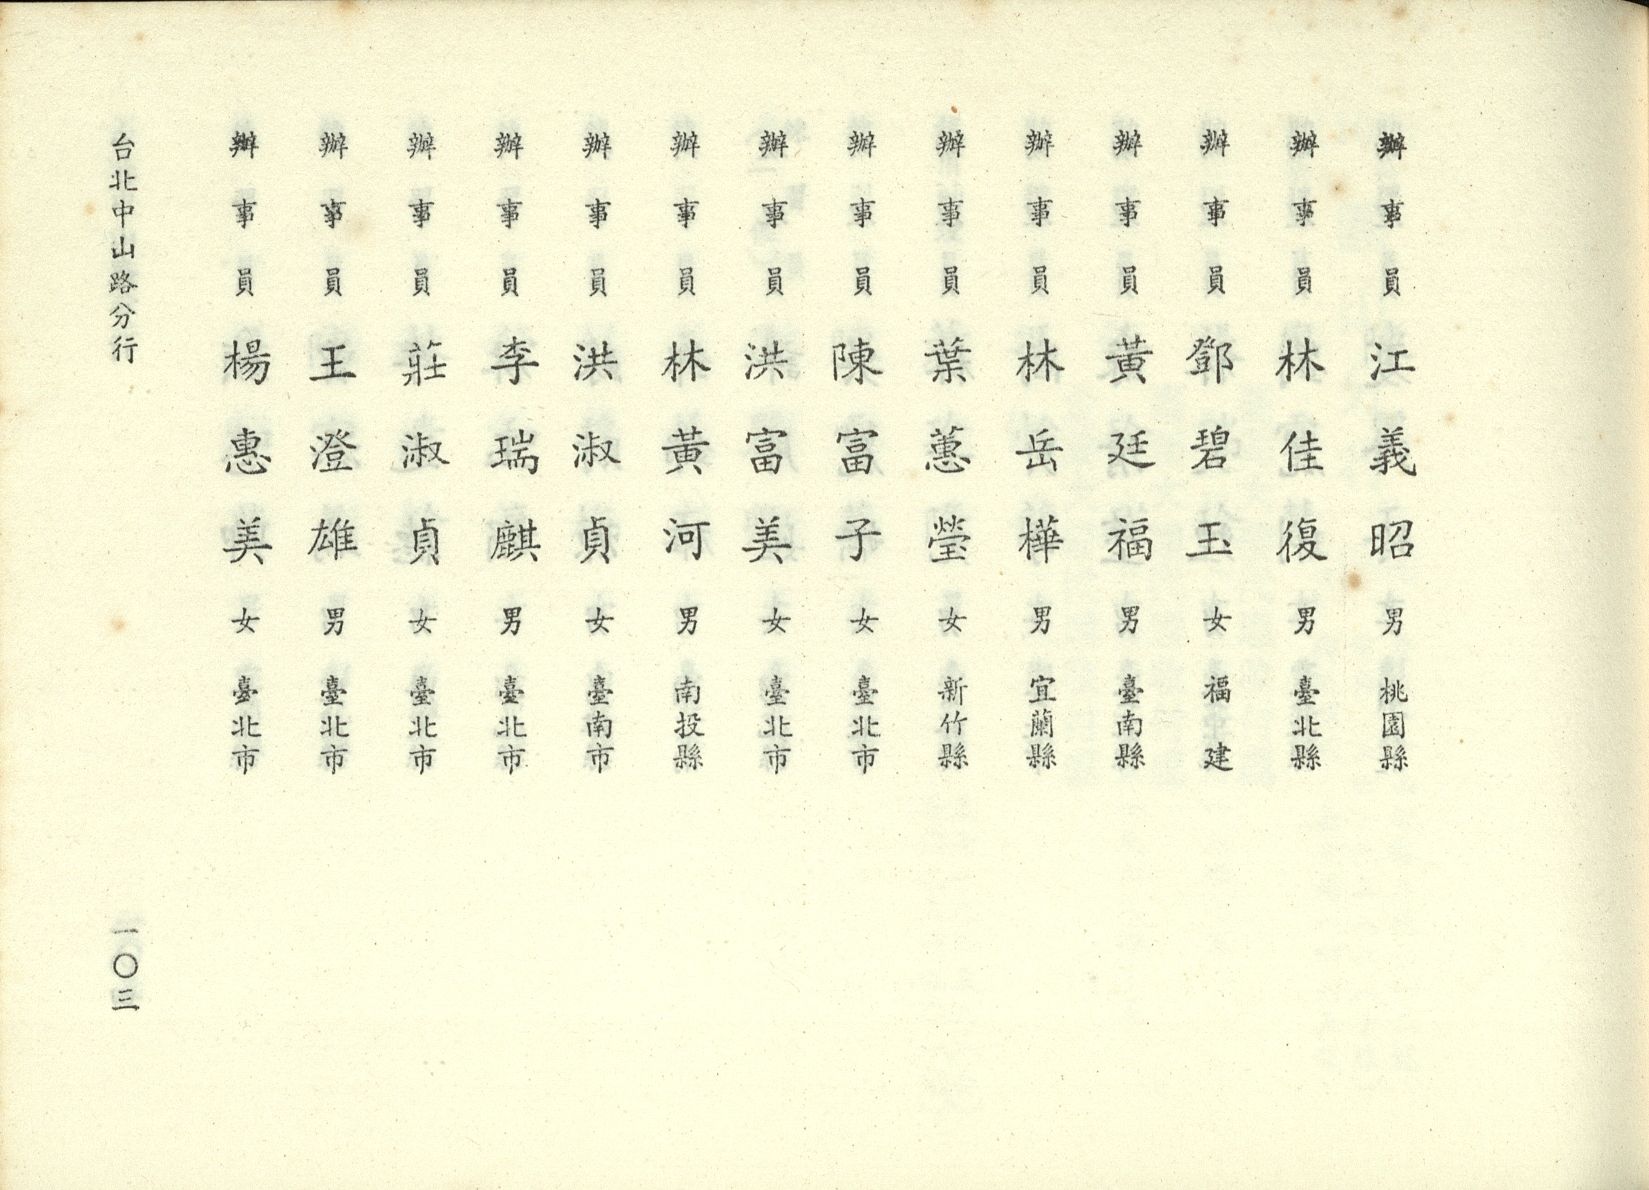 辦事員 江義昭 男 桃園縣
辦事員 林佳復 男 臺北縣
辦事員 鄧碧玉 女 福建
辦事員 黃廷福 男 臺南縣
辦事員 林岳樺 男 宜蘭縣
辦事員 葉蕙瑩 女 新竹縣
辦事員 陳富子 女 臺北市
辦事員 洪富美 女 臺北市
辦事員 林黃河 男 南投縣
辦事員 洪淑貞 女 臺南市
辦事員 李瑞麒 男 臺北市
辦事員 莊淑貞 女 臺北市
辦事員 王澄雄 男 臺北市
辦事員 楊惠美 女 臺北市
台北中山路分行 一〇三